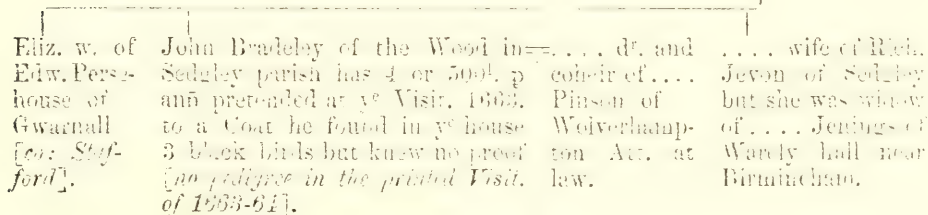 Eliz. w. of
Edw. Persehouse of
Gwarnall
[co: Stafford].
John Bradeley of the Wood in=
Sedgley parish has 4 or 500l. p
ann̄ pretended at ye Visit. 1663.
to a Coat he found in ye house
3 black birds but know no proof
[no pedigree in the printed Visit.
of 1663-64].
.... dr. and
coheir of ....
Pinson of
Wolverhamp-
ton Att. at
law.
.... wife of Rich.
Jevon of Sedgley
but she was widow
of .... Jenings of
Warely hall near
Birmincham.